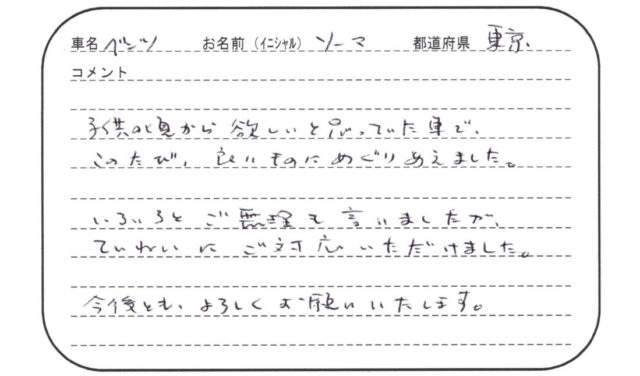 車名 ベンツ お名前（イニシャル） ソーマ 都道府県 東京.
コメント
子供の頃から欲しいと思っていた車で、
このたび、良いものにめぐりあえました。
いろいろとご無理も言いましたが、
ていねいにご対応いただけました。
今後とも、よろしくお願いいたします。